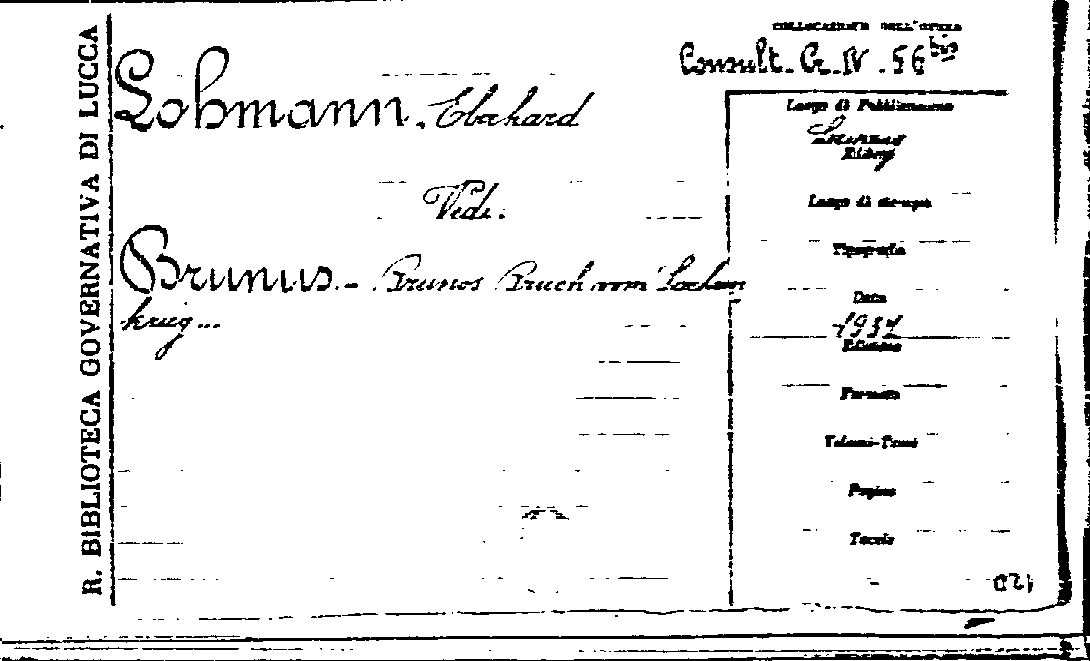 R. BIBLIOTECA GOVERNATIVA DI LUCCA
COLLOCAZIONE DELL'OPERA
Consult. G. IV. 56 bis
Lohmann. Eberhard
Vedi.
Brunus. - Brunos Buch vom Sachsen
krieg...
Luogo di Pubblicazione
Editore
Luogo di stampa
Tipografia
Data
1937
Edizione
Formato
Volumi-Tomi
Pagine
Tavole